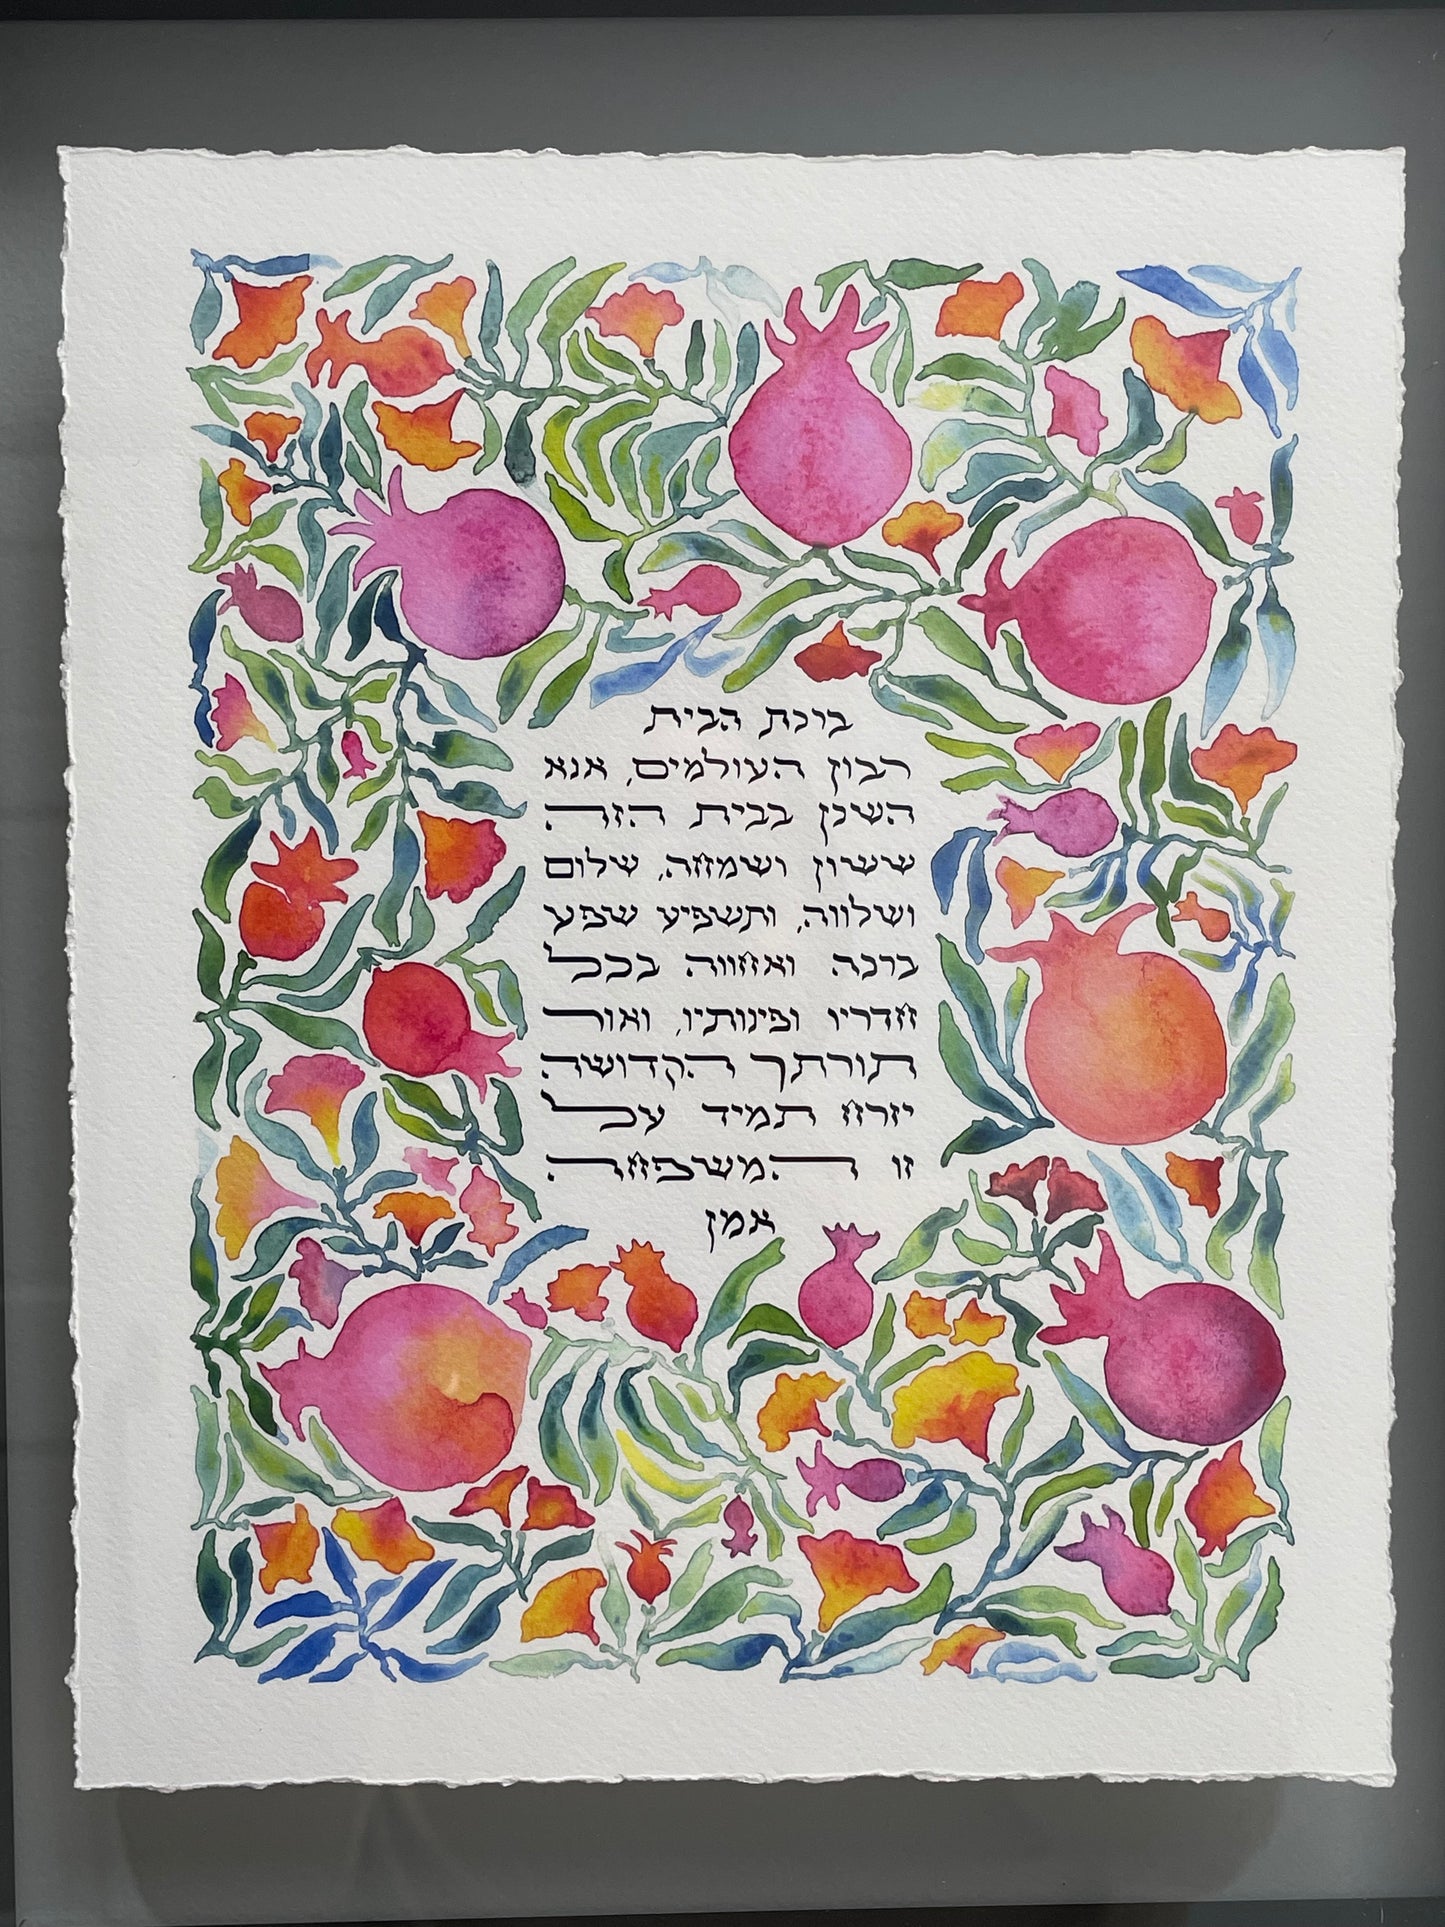 ברכת הבית
רבון העולמים, אנא
השכן בבית הזה
ששון ושמחה, שלום
ושלווה, ותשפיע שפע
ברכה ואחווה בכל
חדריו ופינותיו, ואור
תורתך הקדושה
יזרח תמיד על
זו המשפחה
אמן